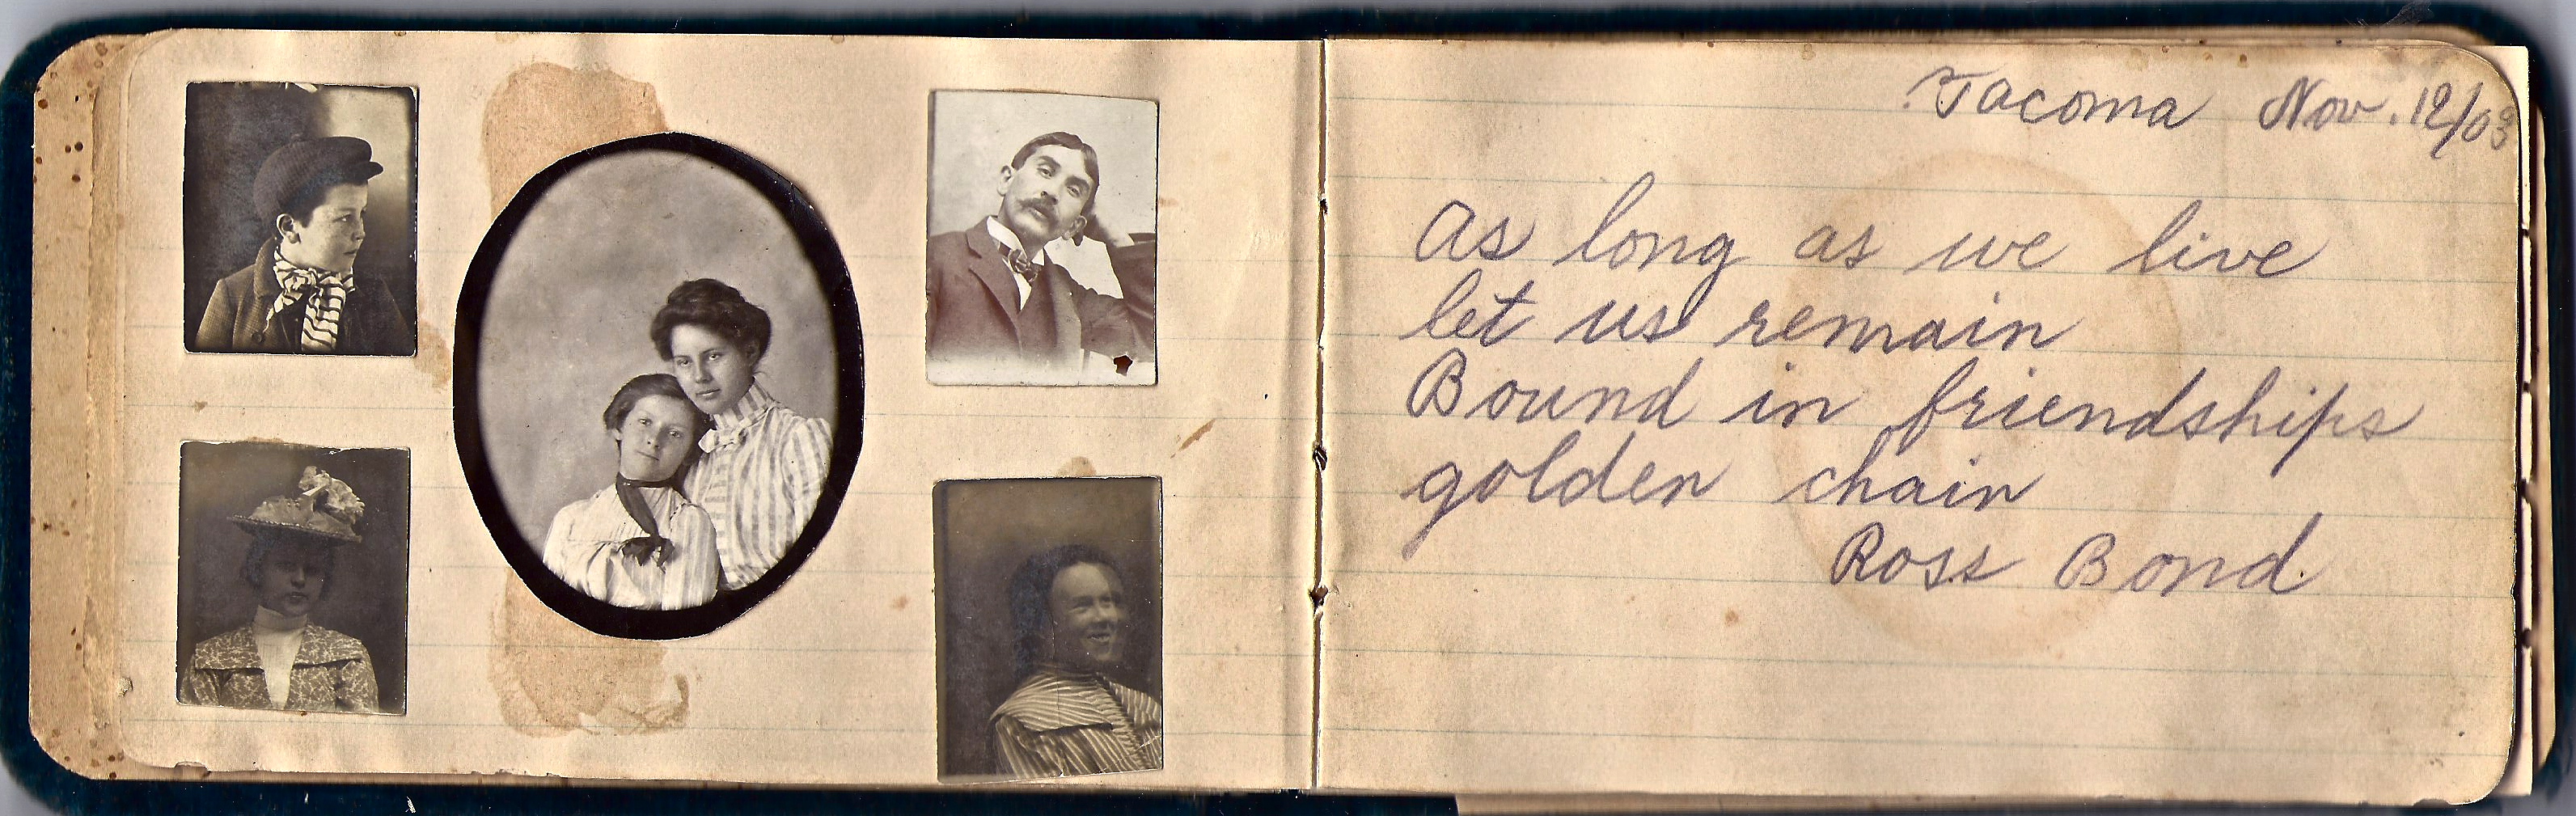 Tacoma Nov. 12/03
As long as we live
let us remain
Bound in friendships
golden chain
Ross Bond.